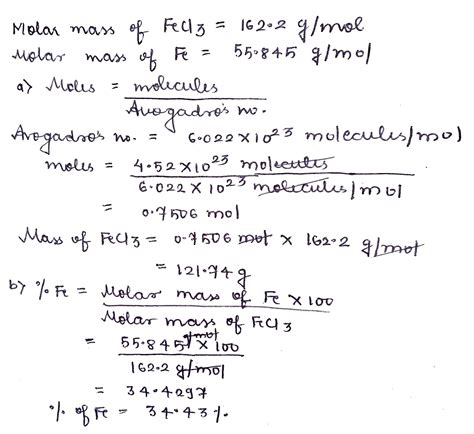 Molar mass of FeCl3 = 162.2 g/mol
Molar mass of Fe = 55.845 g/mol
a) Moles = molecules
Avogadro's no.
Avogadro's no. = 6.022 × 10^23 molecules/mol
moles = 4.52 × 10^23 molecules
6.022 × 10^23 molecules/mol
= 0.7506 mol
Mass of FeCl3 = 0.7506 mol × 162.2 g/mol
= 121.74 g
b) % Fe = Molar mass of Fe × 100
Molar mass of FeCl3
= 55.845 g/mol × 100
162.2 g/mol
= 34.4297
% of Fe = 34.43 %